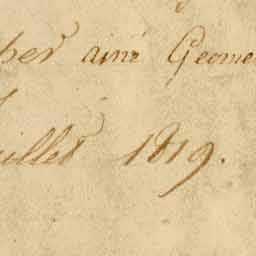 ber ainé Geome
uillet 1819.